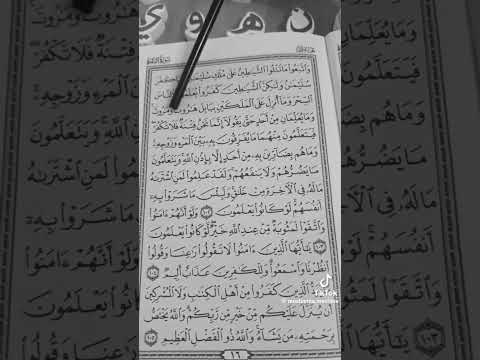 ن ه و ي
وَٱتَّبَعُوا۟ مَا تَتْلُوا۟ ٱلشَّيَٰطِينُ عَلَىٰ مُلْكِ سُلَيْمَٰنَ وَمَا كَفَرَ
سُلَيْمَٰنُ وَلَٰكِنَّ ٱلشَّيَٰطِينَ كَفَرُوا۟ يُعَلِّمُونَ ٱلنَّاسَ
ٱلسِّحْرَ وَمَآ أُنزِلَ عَلَى ٱلْمَلَكَيْنِ بِبَابِلَ هَٰرُوتَ وَمَٰرُوتَ
وَمَا يُعَلِّمَانِ مِنْ أَحَدٍ حَتَّىٰ يَقُولَآ إِنَّمَا نَحْنُ فِتْنَةٌ فَلَا تَكْفُرْ
فَيَتَعَلَّمُونَ مِنْهُمَا مَا يُفَرِّقُونَ بِهِۦ بَيْنَ ٱلْمَرْءِ وَزَوْجِهِۦ
وَمَا هُم بِضَآرِّينَ بِهِۦ مِنْ أَحَدٍ إِلَّا بِإِذْنِ ٱللَّهِ وَيَتَعَلَّمُونَ
مَا يَضُرُّهُمْ وَلَا يَنفَعُهُمْ وَلَقَدْ عَلِمُوا۟ لَمَنِ ٱشْتَرَىٰهُ
مَا لَهُۥ فِى ٱلْءَاخِرَةِ مِنْ خَلَٰقٍ وَلَبِئْسَ مَا شَرَوْا۟ بِهِۦٓ
أَنفُسَهُمْ لَوْ كَانُوا۟ يَعْلَمُونَ ١٠٢ وَلَوْ أَنَّهُمْ ءَامَنُوا۟
وَٱتَّقَوْا۟ لَمَثُوبَةٌ مِّنْ عِندِ ٱللَّهِ خَيْرٌ لَّوْ كَانُوا۟ يَعْلَمُونَ
١٠٣ يَٰٓأَيُّهَا ٱلَّذِينَ ءَامَنُوا۟ لَا تَقُولُوا۟ رَٰعِنَا وَقُولُوا۟
ٱنظُرْنَا وَٱسْمَعُوا۟ وَلِلْكَٰفِرِينَ عَذَابٌ أَلِيمٌ ١٠٤
مَّا يَوَدُّ ٱلَّذِينَ كَفَرُوا۟ مِنْ أَهْلِ ٱلْكِتَٰبِ وَلَا ٱلْمُشْرِكِينَ
أَن يُنَزَّلَ عَلَيْكُم مِّنْ خَيْرٍ مِّن رَّبِّكُمْ وَٱللَّهُ يَخْتَصُّ
بِرَحْمَتِهِۦ مَن يَشَآءُ وَٱللَّهُ ذُو ٱلْفَضْلِ ٱلْعَظِيمِ ١٠٥
١٦